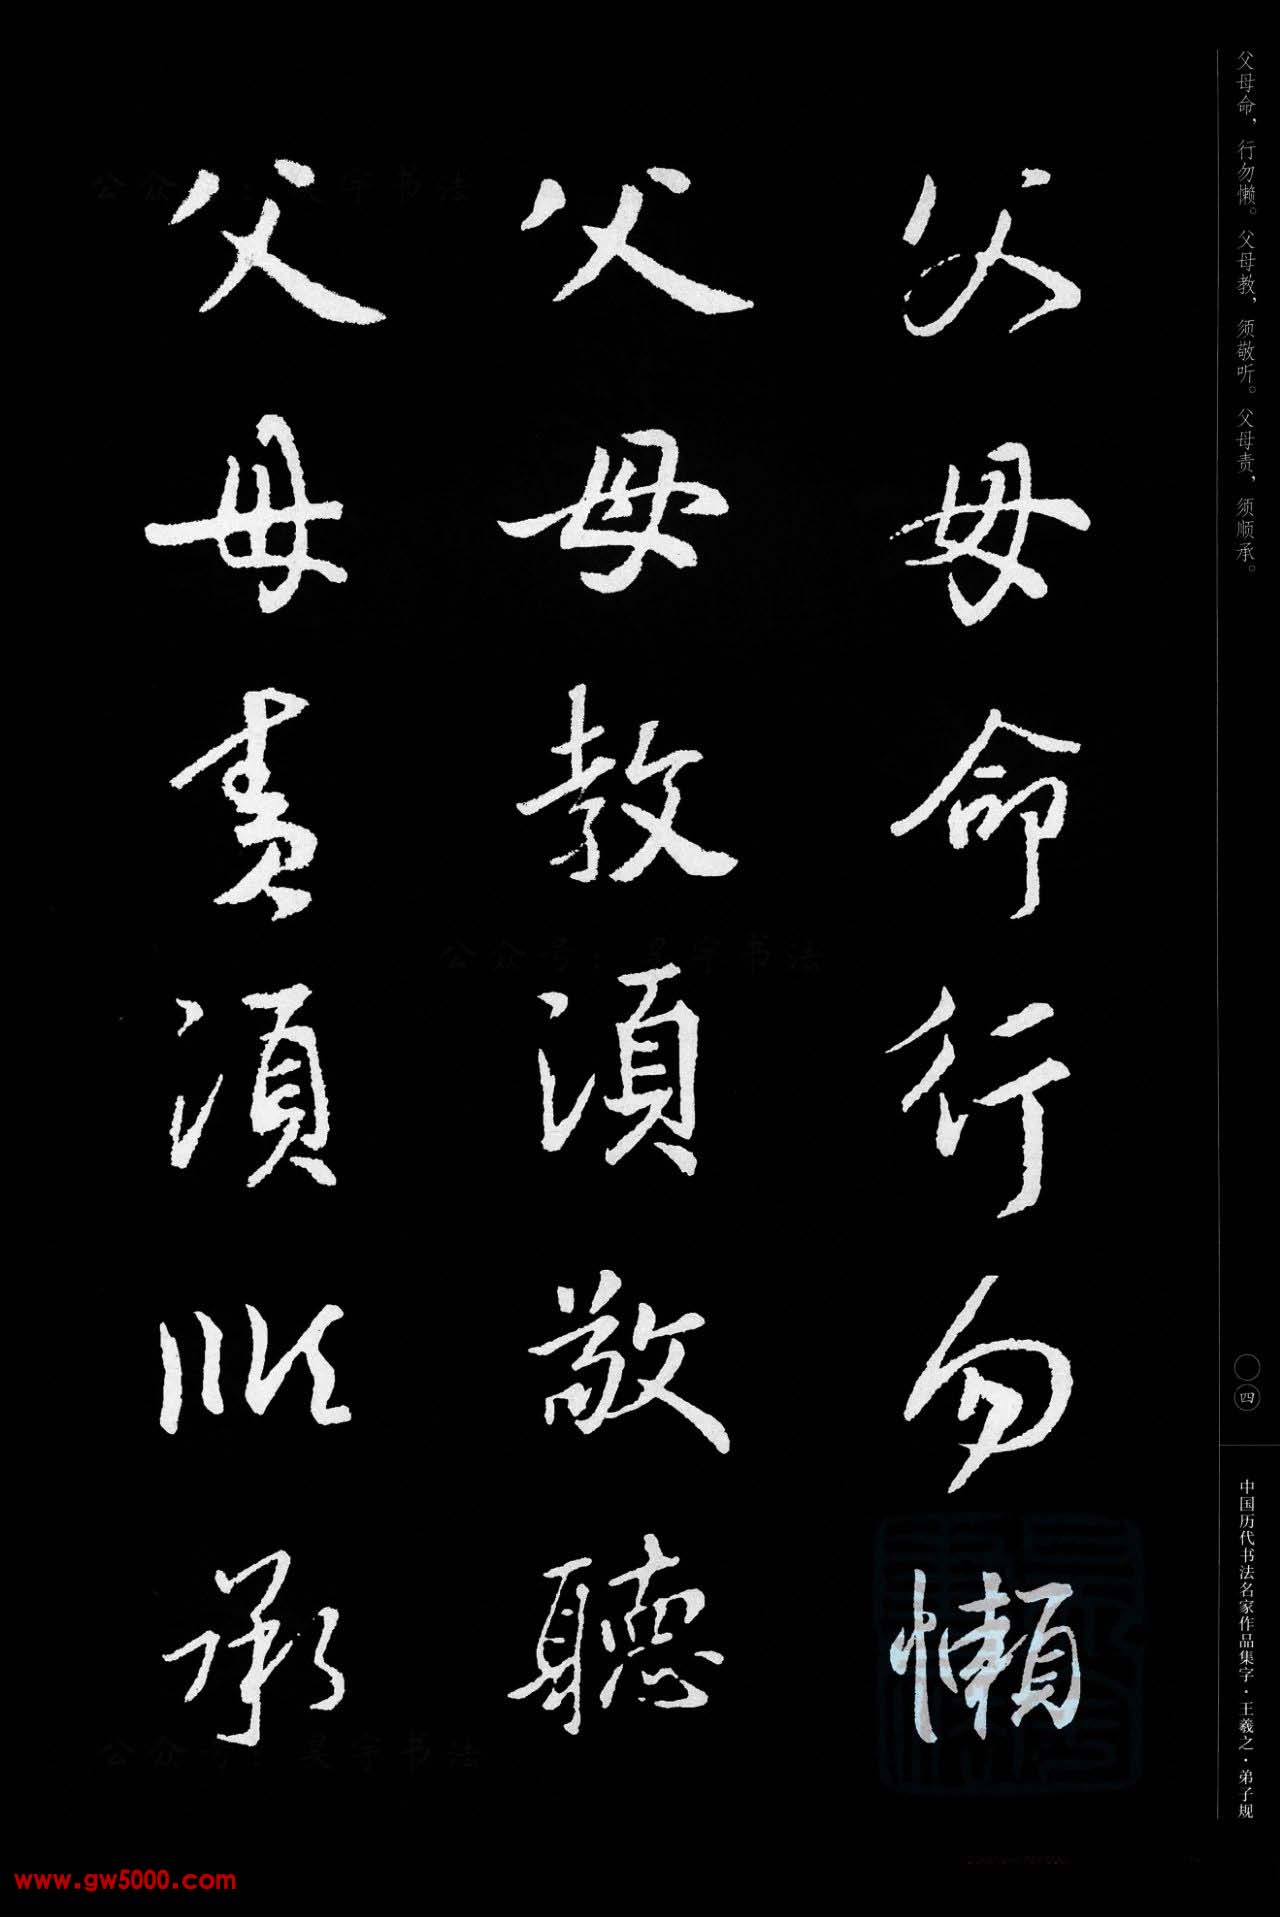 父母命，行勿懒。父母教，须敬听。父母责，须顺承。
父母命行勿懶
父母教須敬聽
父母責須順承
〇四
中国历代书法名家作品集字·王羲之·弟子规
公众号：昊宇书法
公众号：昊宇书法
公众号：昊宇书法
www.gw5000.com